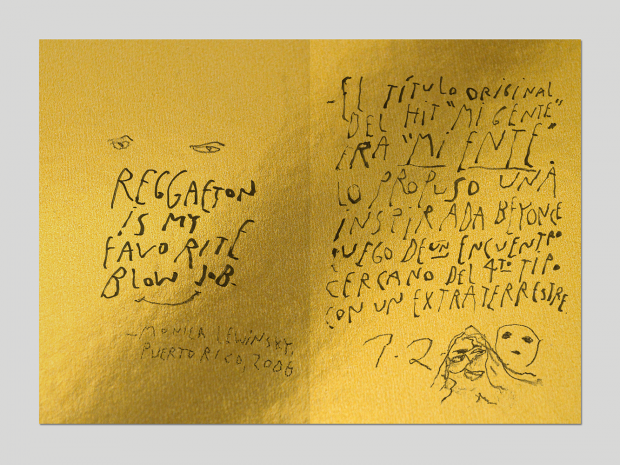 REGGAETON
IS MY
FAVORITE
BLOW JOB.
—MONICA LEWINSKY,
PUERTO RICO, 2006
-EL TÍTULO ORIGINAL
DEL HIT "MI GENTE"
IRA "MI ENTE".
LO PROPUSO UNA
INSPIRADA BEYONCE
LUEGO DE UN ENCUENTRO
CERCANO DEL 4TO TIPO
CON UN EXTRATERRESTRE.